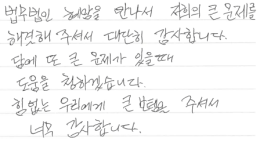 법무법인 혜람을 만나서 저희의 큰 문제를
해결해 주셔서 대단히 감사합니다.
담에 또 큰 문제가 있을때
도움을 청하겠습니다.
힘없는 우리에게 큰 보탬을 주셔서
너무 감사합니다.